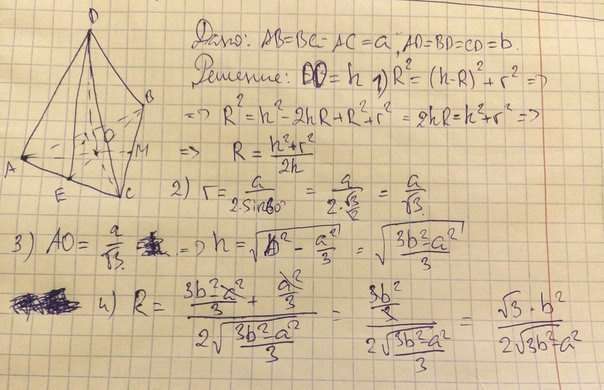 D
A
B
C
E
M
O
Дано: AB=BC=AC=a, AD=BD=CD=b.
Решение: DO=h 1) R²=(h-R)²+r² =>
=> R²=h²-2hR+R²+r² = 2hR=h²+r² =>
=> R = (h²+r²)/(2h)
2) r = a/(2·sin60°) = a/(2·√3/2) = a/√3.
3) AO = a/√3. => h = √(b² - a²/3) = √((3b²-a²)/3)
4) R = ((3b²-a²)/3 + a²/3)/(2√((3b²-a²)/3)) = (3b²/3)/(2√((3b²-a²)/3)) = (√3·b²)/(2√(3b²-a²))